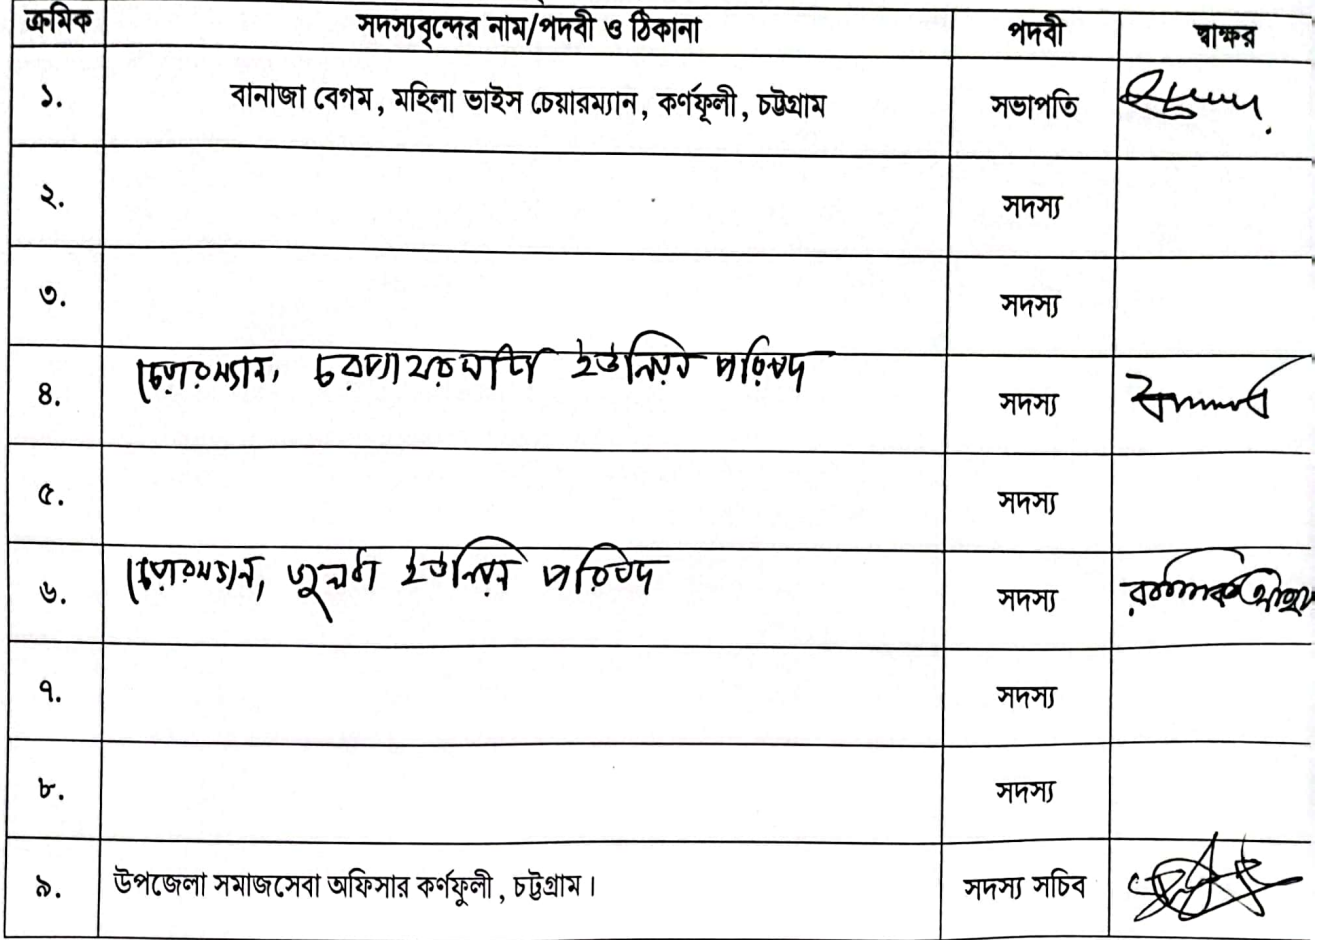 ক্রমিক সদস্যবৃন্দের নাম/পদবী ও ঠিকানা পদবী স্বাক্ষর
১. বানাজা বেগম, মহিলা ভাইস চেয়ারম্যান, কর্ণফূলী, চট্টগ্রাম সভাপতি
২. সদস্য
৩. সদস্য
৪. চেয়ারম্যান, চরপাথরঘাটা ইউনিয়ন পরিষদ সদস্য
৫. সদস্য
৬. চেয়ারম্যান, জুলধা ইউনিয়ন পরিষদ সদস্য
৭. সদস্য
৮. সদস্য
৯. উপজেলা সমাজসেবা অফিসার কর্ণফুলী, চট্টগ্রাম। সদস্য সচিব